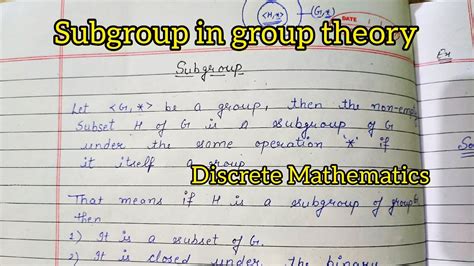 <H,*>
<G,*>
DATE
Subgroup in group theory
Ex
Subgroup
Let <G,*> be a group, then the non-emp
Subset H of G is a subgroup of G
under the same operation '*' if
it itself a group
Discrete Mathematics
That means if H is a subgroup of group G,
then
1) It is a subset of G.
2) It is closed under the binary